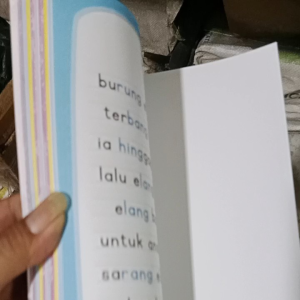 burung
terbang
ia hingg
lalu elan
elang b
untuk an
sarang